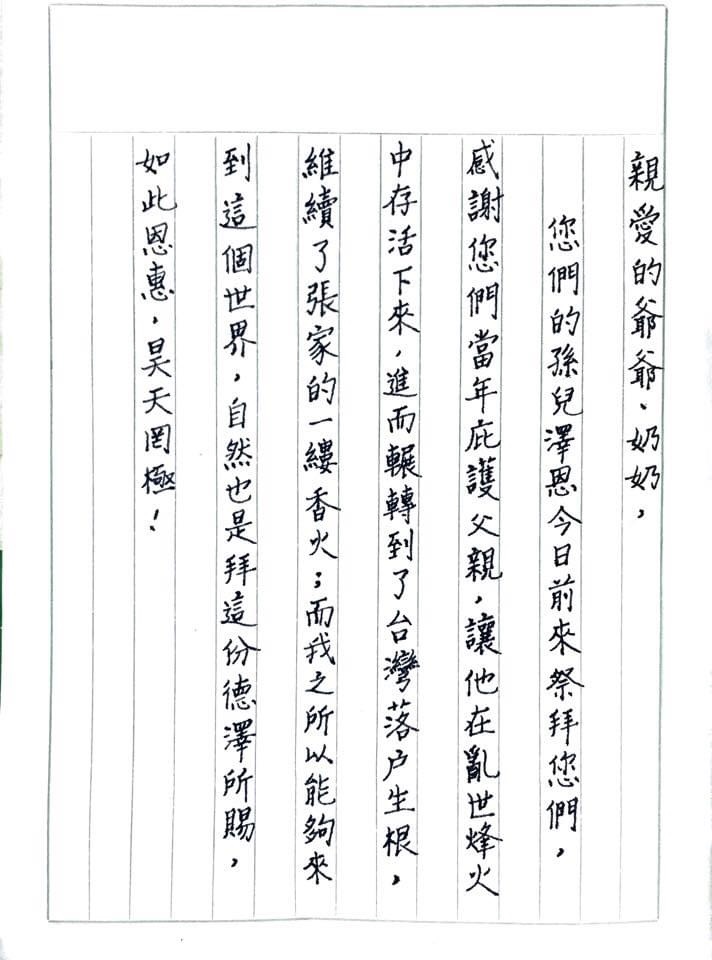 親愛的爺爺、奶奶，
您們的孫兒澤恩今日前來祭拜您們，
感謝您們當年庇護父親，讓他在亂世烽火
中存活下來，進而輾轉到了台灣落户生根，
維續了張家的一縷香火；而我之所以能夠來
到這個世界，自然也是拜這份德澤所賜，
如此恩惠，昊天罔極！